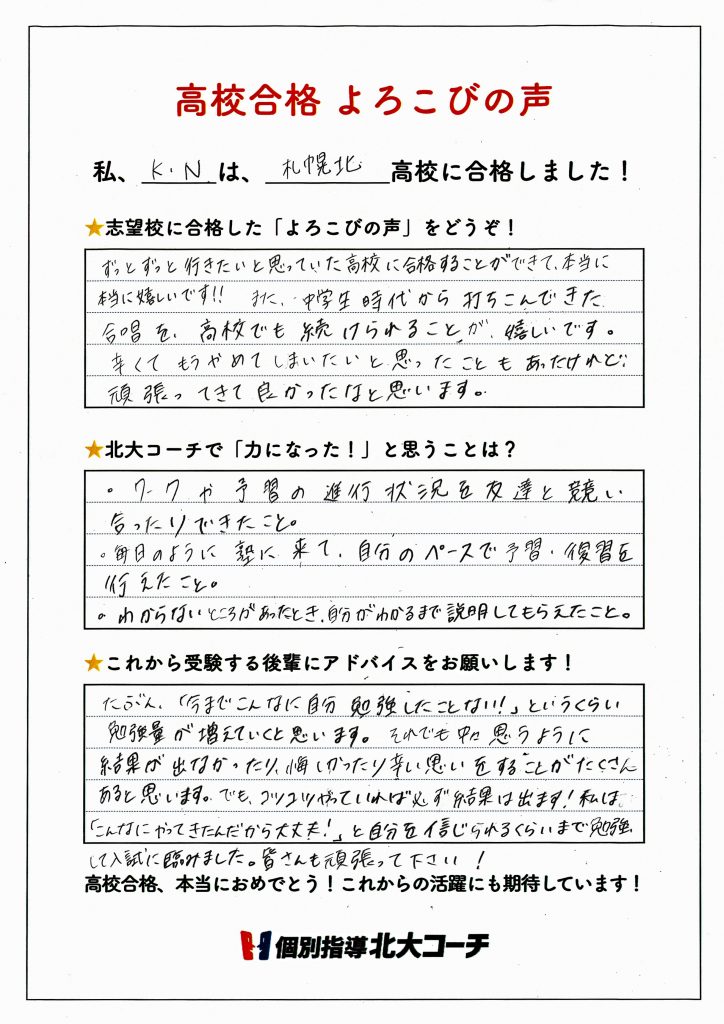 高校合格 よろこびの声
私、K.N.は、札幌北高校に合格しました！
★志望校に合格した「よろこびの声」をどうぞ！
ずっとずっと行きたいと思っていた高校に合格することができて、本当に
本当に嬉しいです!! また、中学生時代から打ちこんできた
合唱を、高校でも続けられることが、嬉しいです。
辛くてもうやめてしまいたいと思ったこともあったけれど、
頑張ってきて良かったなと思います。
★北大コーチで「力になった！」と思うことは？
・ワークや予習の進行状況を友達と競い
合ったりできたこと。
・毎日のように塾に来て、自分のペースで予習・復習を
行えたこと。
・わからないところがあったとき、自分がわかるまで説明してもらえたこと。
★これから受験する後輩にアドバイスをお願いします！
たぶん、「今までこんなに自分勉強したことない！」というくらい
勉強量が増えていくと思います。それでも中々思うように
結果が出なかったり、悔しかったり辛い思いをすることがたくさん
あると思います。でも、コツコツやっていれば必ず結果は出ます！私は
「こんなにやってきたんだから大丈夫！」と自分を信じられるくらいまで勉強
して入試に臨みました。皆さんも頑張って下さい！
高校合格、本当におめでとう！これからの活躍にも期待しています！
個別指導 北大コーチ